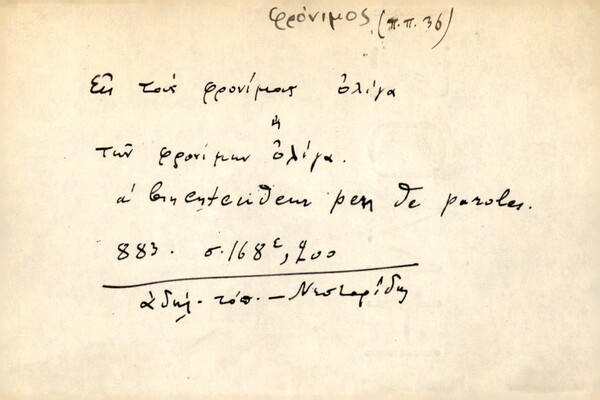 φρόνιμος (π.π. 36)
Εἰς τοὺς φρονίμους ὀλίγα
ἢ
τῶν φρονίμων ὀλίγα.
à bon entendeur peu de paroles.
883. σ. 168ε, 200
ἀδήλ. τόπ. — Νεστορίδης